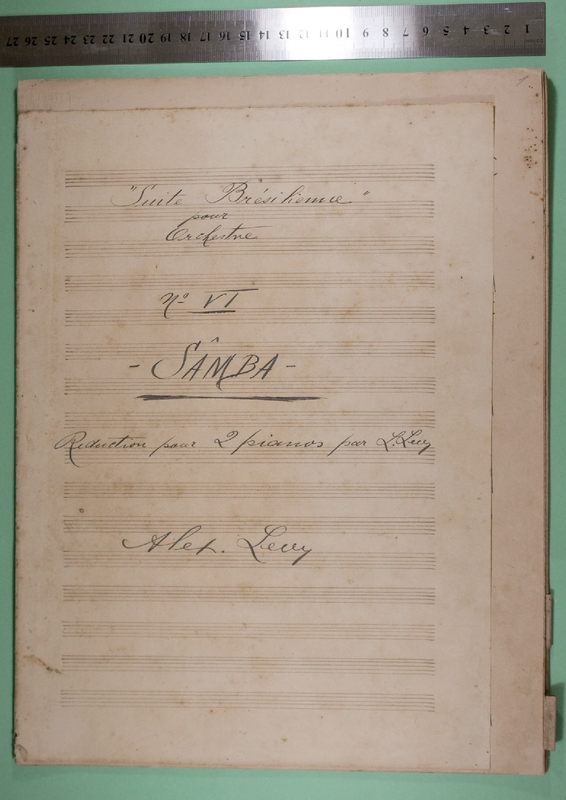 1 2 3 4 5 6 7 8 9 10 11 12 13 14 15 16 17 18 19 20 21 22 23 24 25 26 27
"Suite Brésilienne"
pour
Orchestre
Nº VI
- SÂMBA -
Reduction pour 2 pianos par L. Levy
Alex. Levy